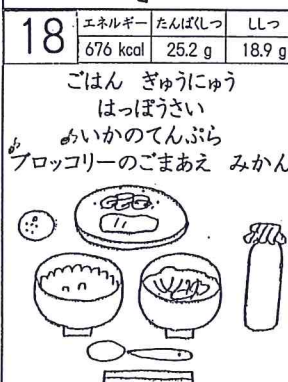 18
エネルギー たんぱくしつ ししつ
676 kcal 25.2 g 18.9 g
ごはん ぎゅうにゅう
はっぽうさい
いかのてんぷら
ブロッコリーのごまあえ みかん